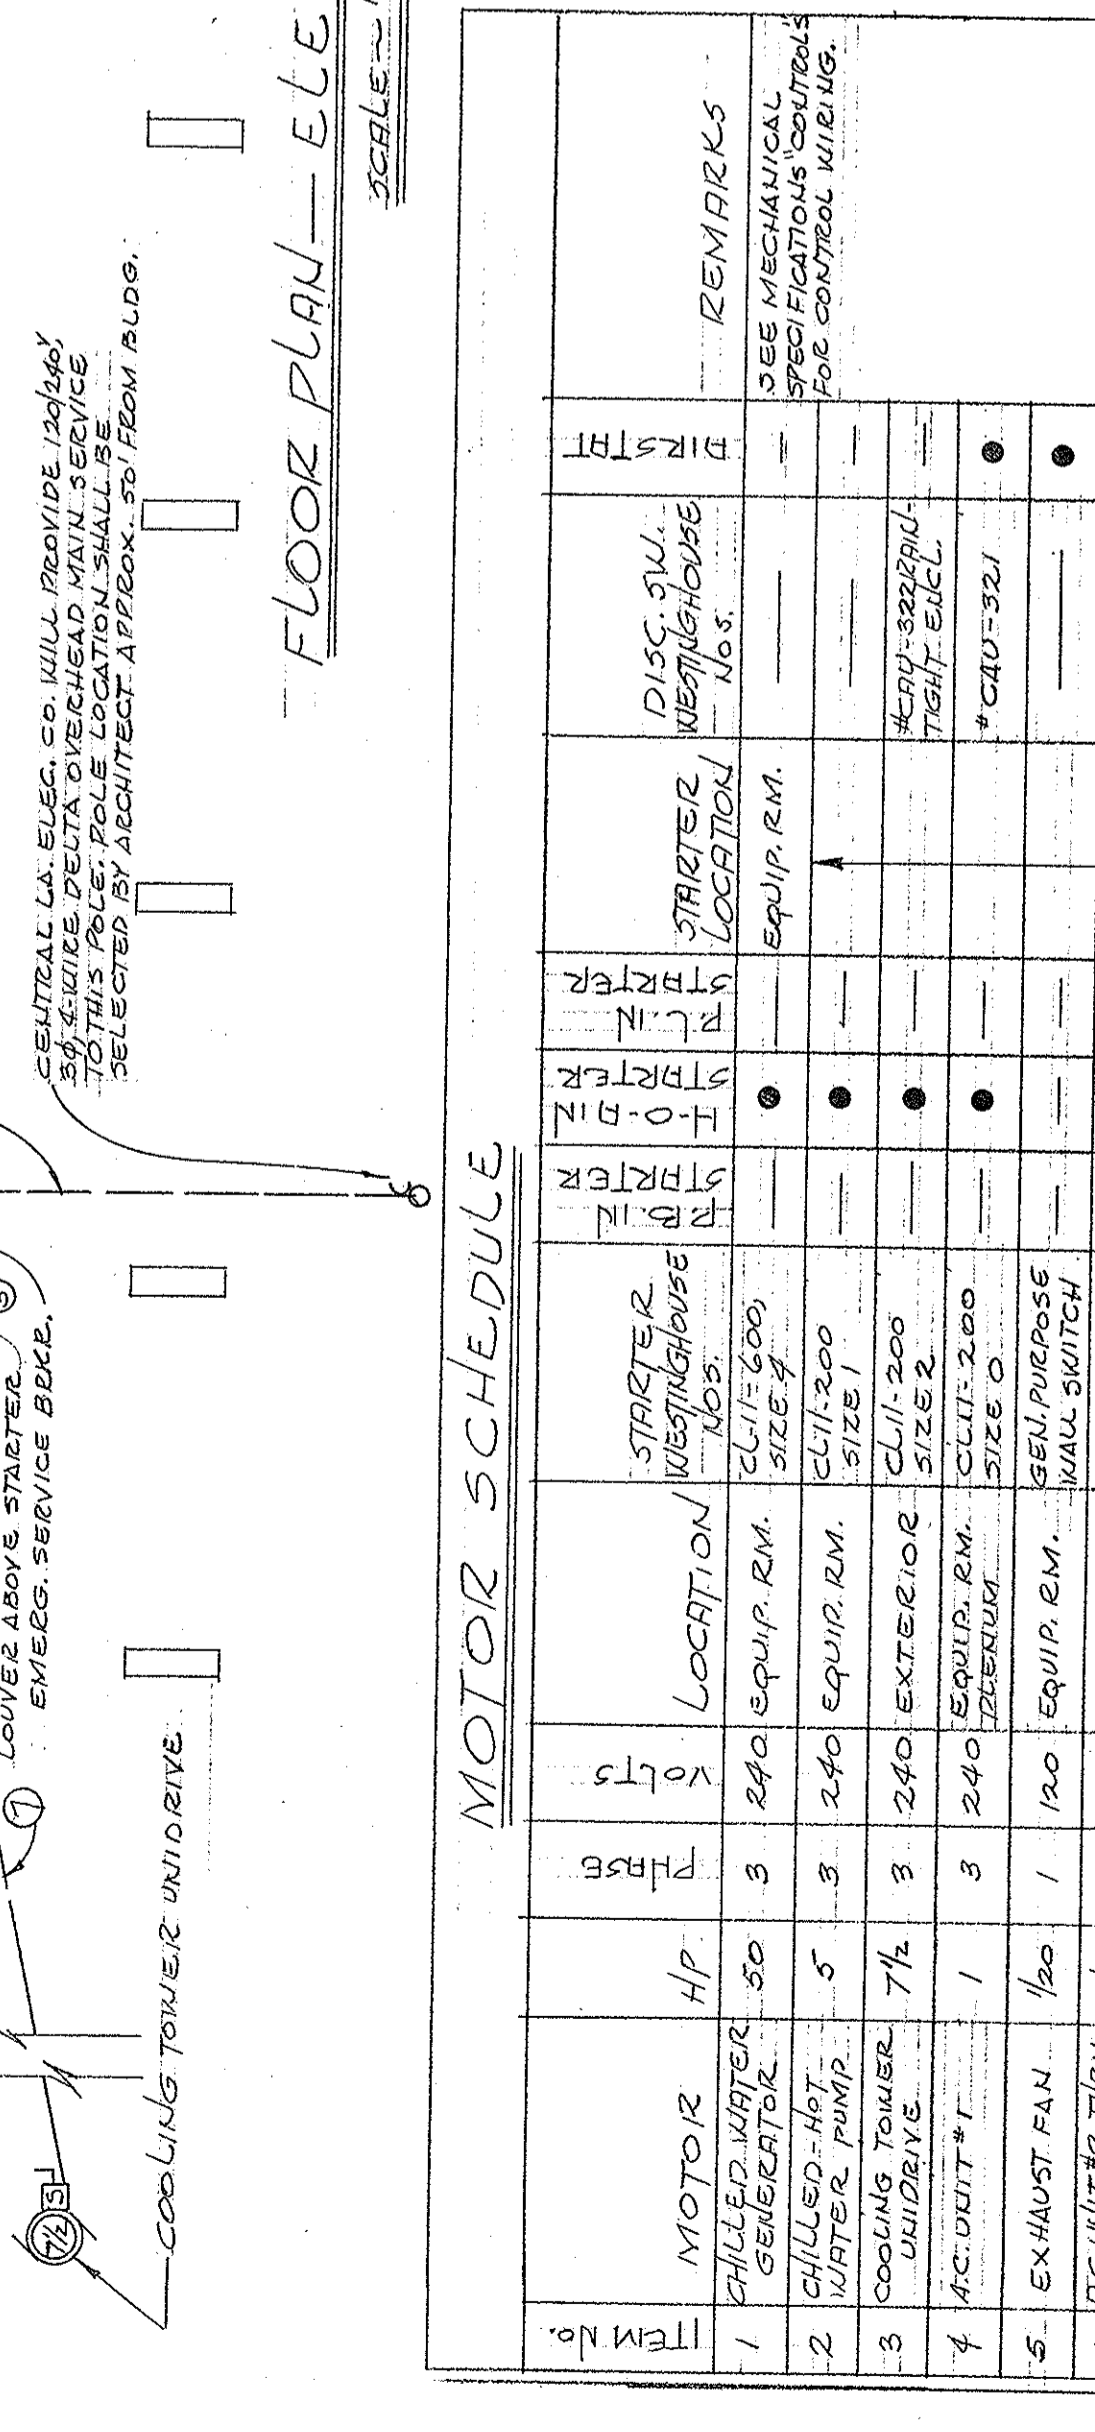 CENTRAL LA. ELEC. CO. WILL PROVIDE 120/240V,
3Φ, 4-WIRE DELTA OVERHEAD MAIN SERVICE
TO THIS POLE. POLE LOCATION SHALL BE
SELECTED BY ARCHITECT APPROX. 50' FROM BLDG.
7 LOUVER ABOVE STARTER
EMERG. SERVICE BRKR.
7½ S
COOLING TOWER UNIDRIVE
FLOOR PLAN — ELE
SCALE
MOTOR SCHEDULE
ITEM No. MOTOR HP. PHASE VOLTS LOCATION STARTER WESTINGHOUSE NOS. P.B. IN STARTER H-O-A IN STARTER P.L. IN STARTER STARTER LOCATION DISC. SW. WESTINGHOUSE NOS. AIRSTAT REMARKS
1 CHILLED WATER GENERATOR 50 3 240 EQUIP. RM. CL11-600, SIZE 4 — ● — EQUIP. RM. — — SEE MECHANICAL
SPECIFICATIONS "CONTROLS"
FOR CONTROL WIRING.
2 CHILLED-HOT WATER PUMP 5 3 240 EQUIP. RM. CL11-200 SIZE 1 — ● — — —
3 COOLING TOWER UNIDRIVE 7½ 3 240 EXTERIOR CL11-200 SIZE 2 — ● — #CAU-322 RAIN-TIGHT ENCL. —
4 A.C. UNIT #1 1 3 240 EQUIP. RM. PLENUM CL11-200 SIZE 0 — ● — #CAU-321 ●
5 EXHAUST FAN 1/20 1 120 EQUIP. RM. GEN. PURPOSE WALL SWITCH — — — — ●